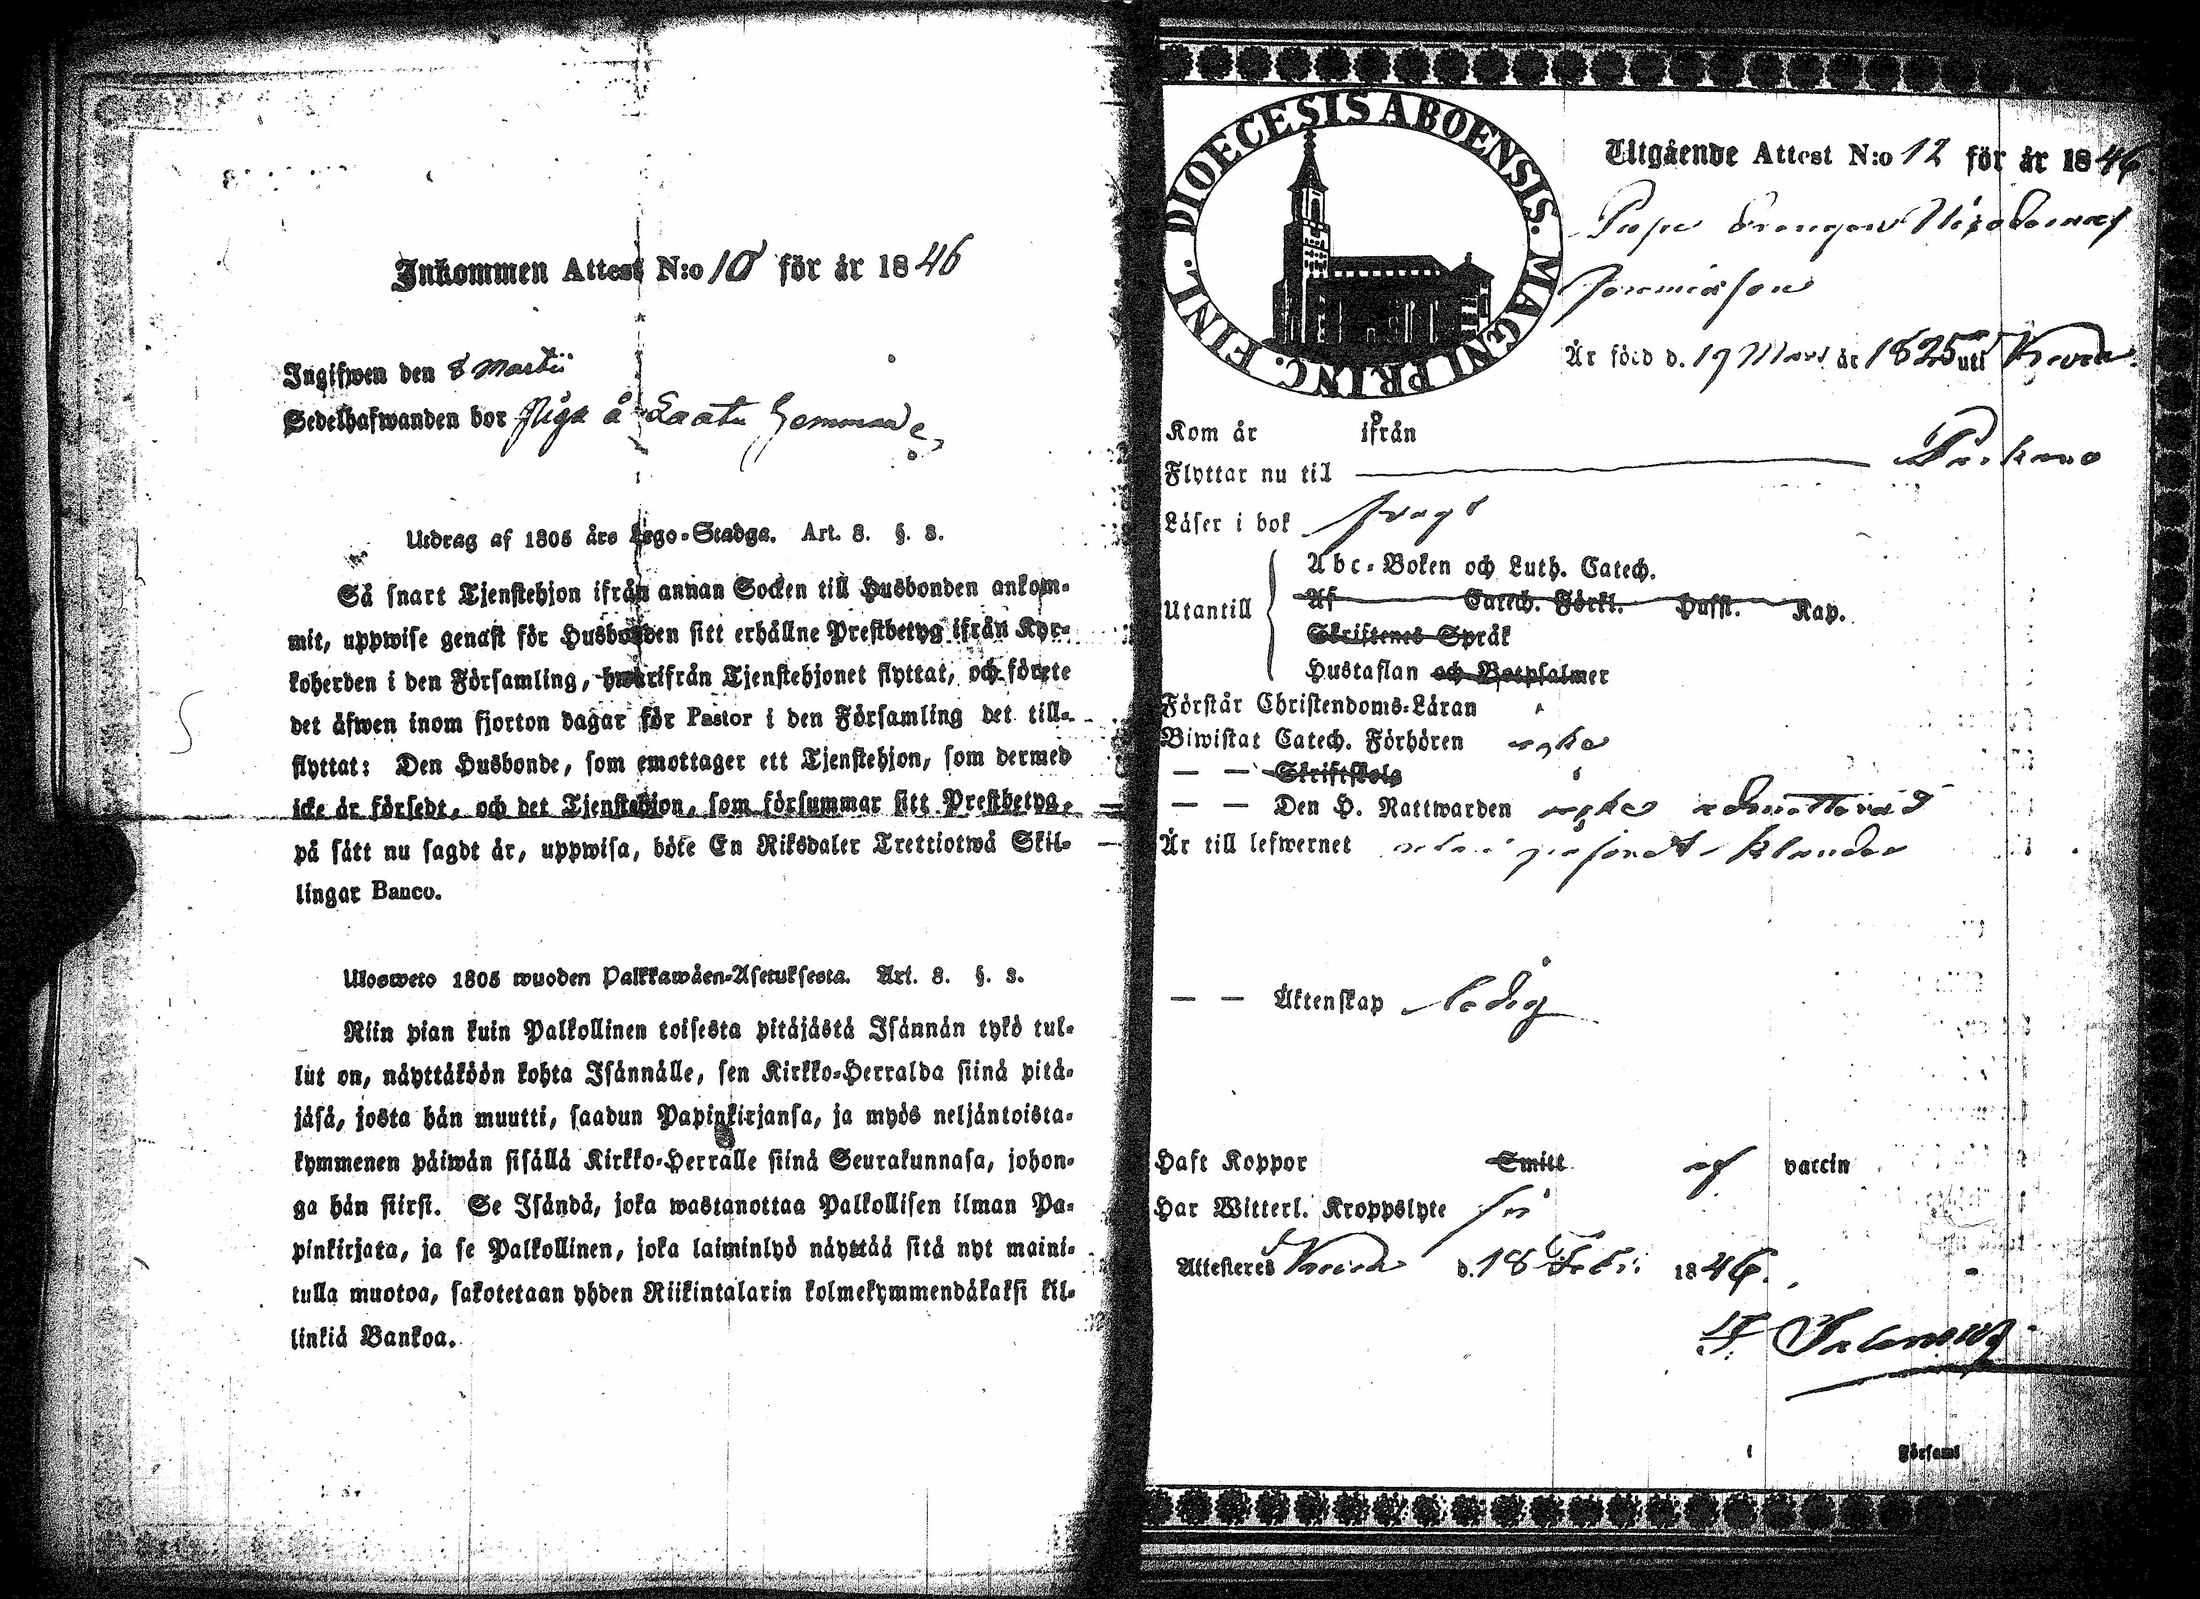 Inkommen Attest N:o 10 för år 1846
Ingifwen den 8 Martii
Sedelhafwanden bor Piga å Laatu hemman
Utdrag af 1805 års Lego-Stadga. Art. 8. §. 3.
Så snart Tjenstehjon ifrån annan Socken till Husbonden ankom-
mit, uppwise genast för Husbonden sitt erhållne Prestbetyg ifrån Kyr-
koherden i den Församling, hwarifrån Tjenstehjonet flyttat, och förete
det äfwen inom fjorton dagar för Pastor i den Församling det till-
flyttat: Den Husbonde, som emottager ett Tjenstehjon, som dermed
icke är försedt, och det Tjenstehjon, som försummar sitt Prestbetyg,
på sätt nu sagdt är, uppwisa, böte En Riksdaler Trettiotwå Skil-
lingar Banco.
Ulosweto 1805 wuoden Palkkawäen-Asetuksesta. Art. 8. §. 3.
Niin pian kuin Palkollinen toisesta pitäjästä Isännän tykö tul-
lut on, näyttäköön kohta Isännälle, sen Kirkko-Herralda siinä pitä-
jäsä, josta hän muutti, saadun Papinkirjansa, ja myös neljäntoista-
kymmenen päiwän sisällä Kirkko-Herralle siinä Seurakunnasa, johon-
ga hän siirsi. Se Isändä, joka wastanottaa Palkollisen ilman Pa-
pinkirjata, ja se Palkollinen, joka laiminlyö näyttää sitä nyt maini-
tulla muotoa, sakotetaan yhden Riikintalarin kolmekymmendäkaksi kil-
linkiä Bankoa.
DIOECESIS ABOENSIS. MAGNI PRINC. FINL.
Utgående Attest N:o 12 för år 1846
Drengen Nicodemus
Jeremiasson
Är föld d. 19 Mars år 1825 uti
Kom år ifrån
Flyttar nu til Parkano
Läser i bok svagt
Abc-Boken och Luth. Catech.
Utantill Af Catech. Förkl. Hufst. Kap.
Skriftenes Språk
Hustaflan och Botpsalmer
Förstår Christendoms-Läran
Biwistat Catech. Förhören
— — Skriftskola
— — Den H. Nattwarden admitterad
Är till lefwernet
— — Äktenskap ledig
Haft Koppor Smitt af vaccin
Har Witterl. Kroppslyte
Attesteres d. 18 Febr. 1846.
i Församl